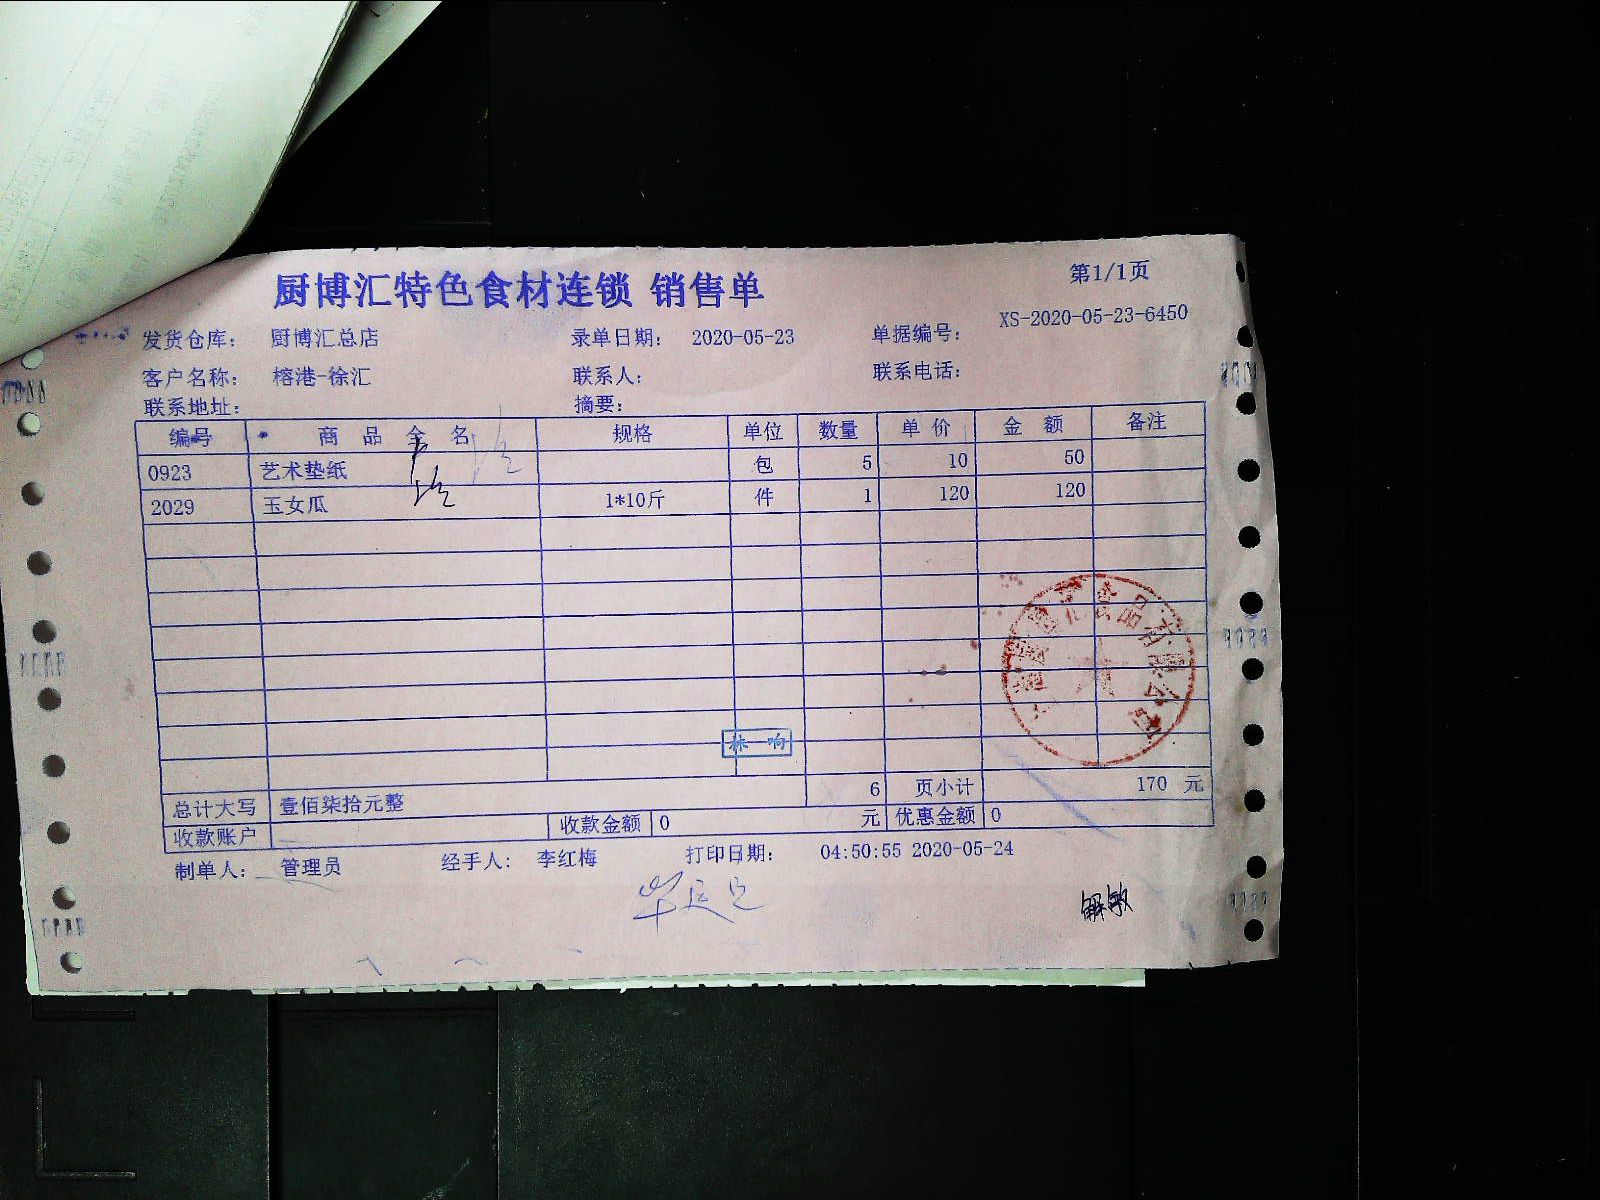 厨博汇特色食材连锁 销售单
第1/1页
发货仓库： 厨博汇总店 录单日期： 2020-05-23 单据编号： XS-2020-05-23-6450
客户名称： 榕港-徐汇 联系人： 联系电话：
联系地址： 摘要：
编号 商品全名 规格 单位 数量 单价 金额 备注
0923 艺术垫纸 包 5 10 50
2029 玉女瓜 1*10斤 件 1 120 120
林响
6 页小计 170 元
总计大写 壹佰柒拾元整
收款账户 收款金额 0 元 优惠金额 0
制单人： 管理员 经手人： 李红梅 打印日期： 04:50:55 2020-05-24
解敏